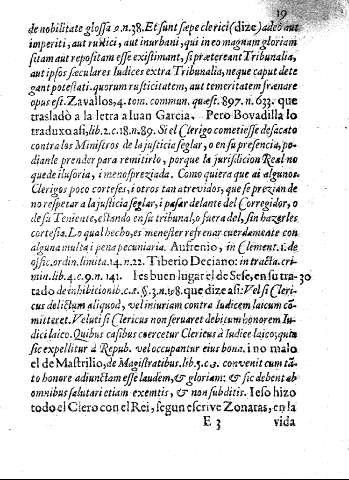 19
de nobilitate glossa 9.n.38. Et sunt sæpe clerici (dize) adeò aut
imperiti, aut rustici, aut inurbani, qui in eo magnam gloriam
sitam aut repositam esse existimant, si prætereant Tribunalia,
aut ipsos sæculares Iudices extra Tribunalia, neque caput dete
gant potestati. quorum rusticitatem, aut temeritatem frænare
opus est. Zavallos, 4. tom. commun. quæst. 897. n. 633. que
trasladò a la letra a Iuan Garcia. Pero Bovadilla lo
traduxo asi, lib.2.c.18.n.89. Si el Clerigo cometiesse desacato
contra los Ministros de la justicia seglar, o en su presencia, po-
dianle prender para remitirlo, porque la jurisdicion Real no
quede ilusoria, i menospreziada. Como quiera que ai algunos
Clerigos poco corteses, i otros tan atrevidos, que se prezian de
no respetar a la justicia seglar, i pasar delante del Corregidor, o
de su Teniente, estando en su tribunal, o fuera del, sin hazerles
cortesia. Lo qual hecho, es menester refrenar cuerdamente con
alguna multa i pena pecuniaria. Aufrenio, in Clement. 1. de
offic. ordin. limita.14.n.22. Tiberio Deciano: in tracta. cri-
min. lib.4.c.9.n. 141. I es buen lugar el de Sese, en su tra-30
tado de inhibitionib.c.8. §.3.n.158. que dize asi: Vel si Cleri-
cus delictum aliquod, vel iniuriam contra Iudicem laicum cō-
mitteret. Veluti si Clericus non servaret debitum honorem Iu-
dici laico. Quibus casibus coercetur Clericus à Iudice laico; quia
sic expellitur à Repub. vel occupantur eius bona. i no malo
el de Mastrilio, de Magistratibus. lib.5.c.3. convenit cum tā-
to honore adiunctam esse laudem, & gloriam: & sic debent ab
omnibus salutari etiam exemtis, & non subditis. I eso hizo
todo el Clero con el Rei, segun escrive Zonaras, en la
E 3 vida